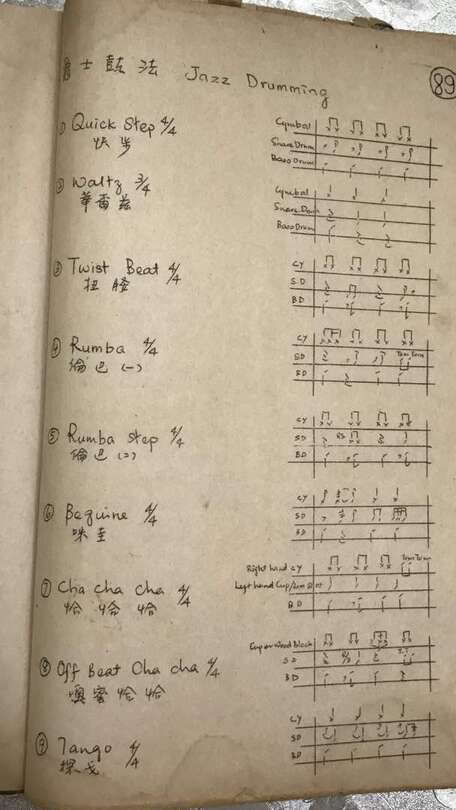 士 鼓 法 Jazz Drumming
89
① Quick Step 4/4
快 步
Cymbal
Snare Drum
Bass Drum
② Waltz 3/4
華 爾 茲
Cymbal
Snare Drum
Bass Drum
③ Twist Beat 4/4
扭 腰
CY
S D
B D
④ Rumba 4/4
倫 巴 (一)
CY
SD
Tom Tom
BD
⑤ Rumba Step 4/4
倫 巴 (二)
CY
SD
BD
⑥ Beguine 4/4
CY
SD
BD
⑦ Cha Cha Cha 4/4
恰 恰 恰
Right hand CY
Tom Tom
Left hand Cup/
BD
⑧ Off Beat Cha cha 4/4
恰 恰
Cup or Wood Block
S D
B D
⑨ Tango 4/4
探 戈
CY
SD
BD